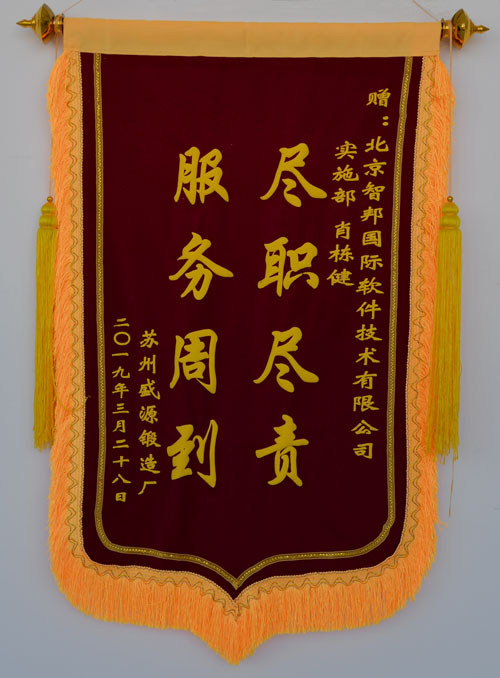 赠：北京智邦国际软件技术有限公司
实施部 肖栋健
尽职尽责
服务周到
苏州盛源锻造厂
二〇一九年三月二十八日